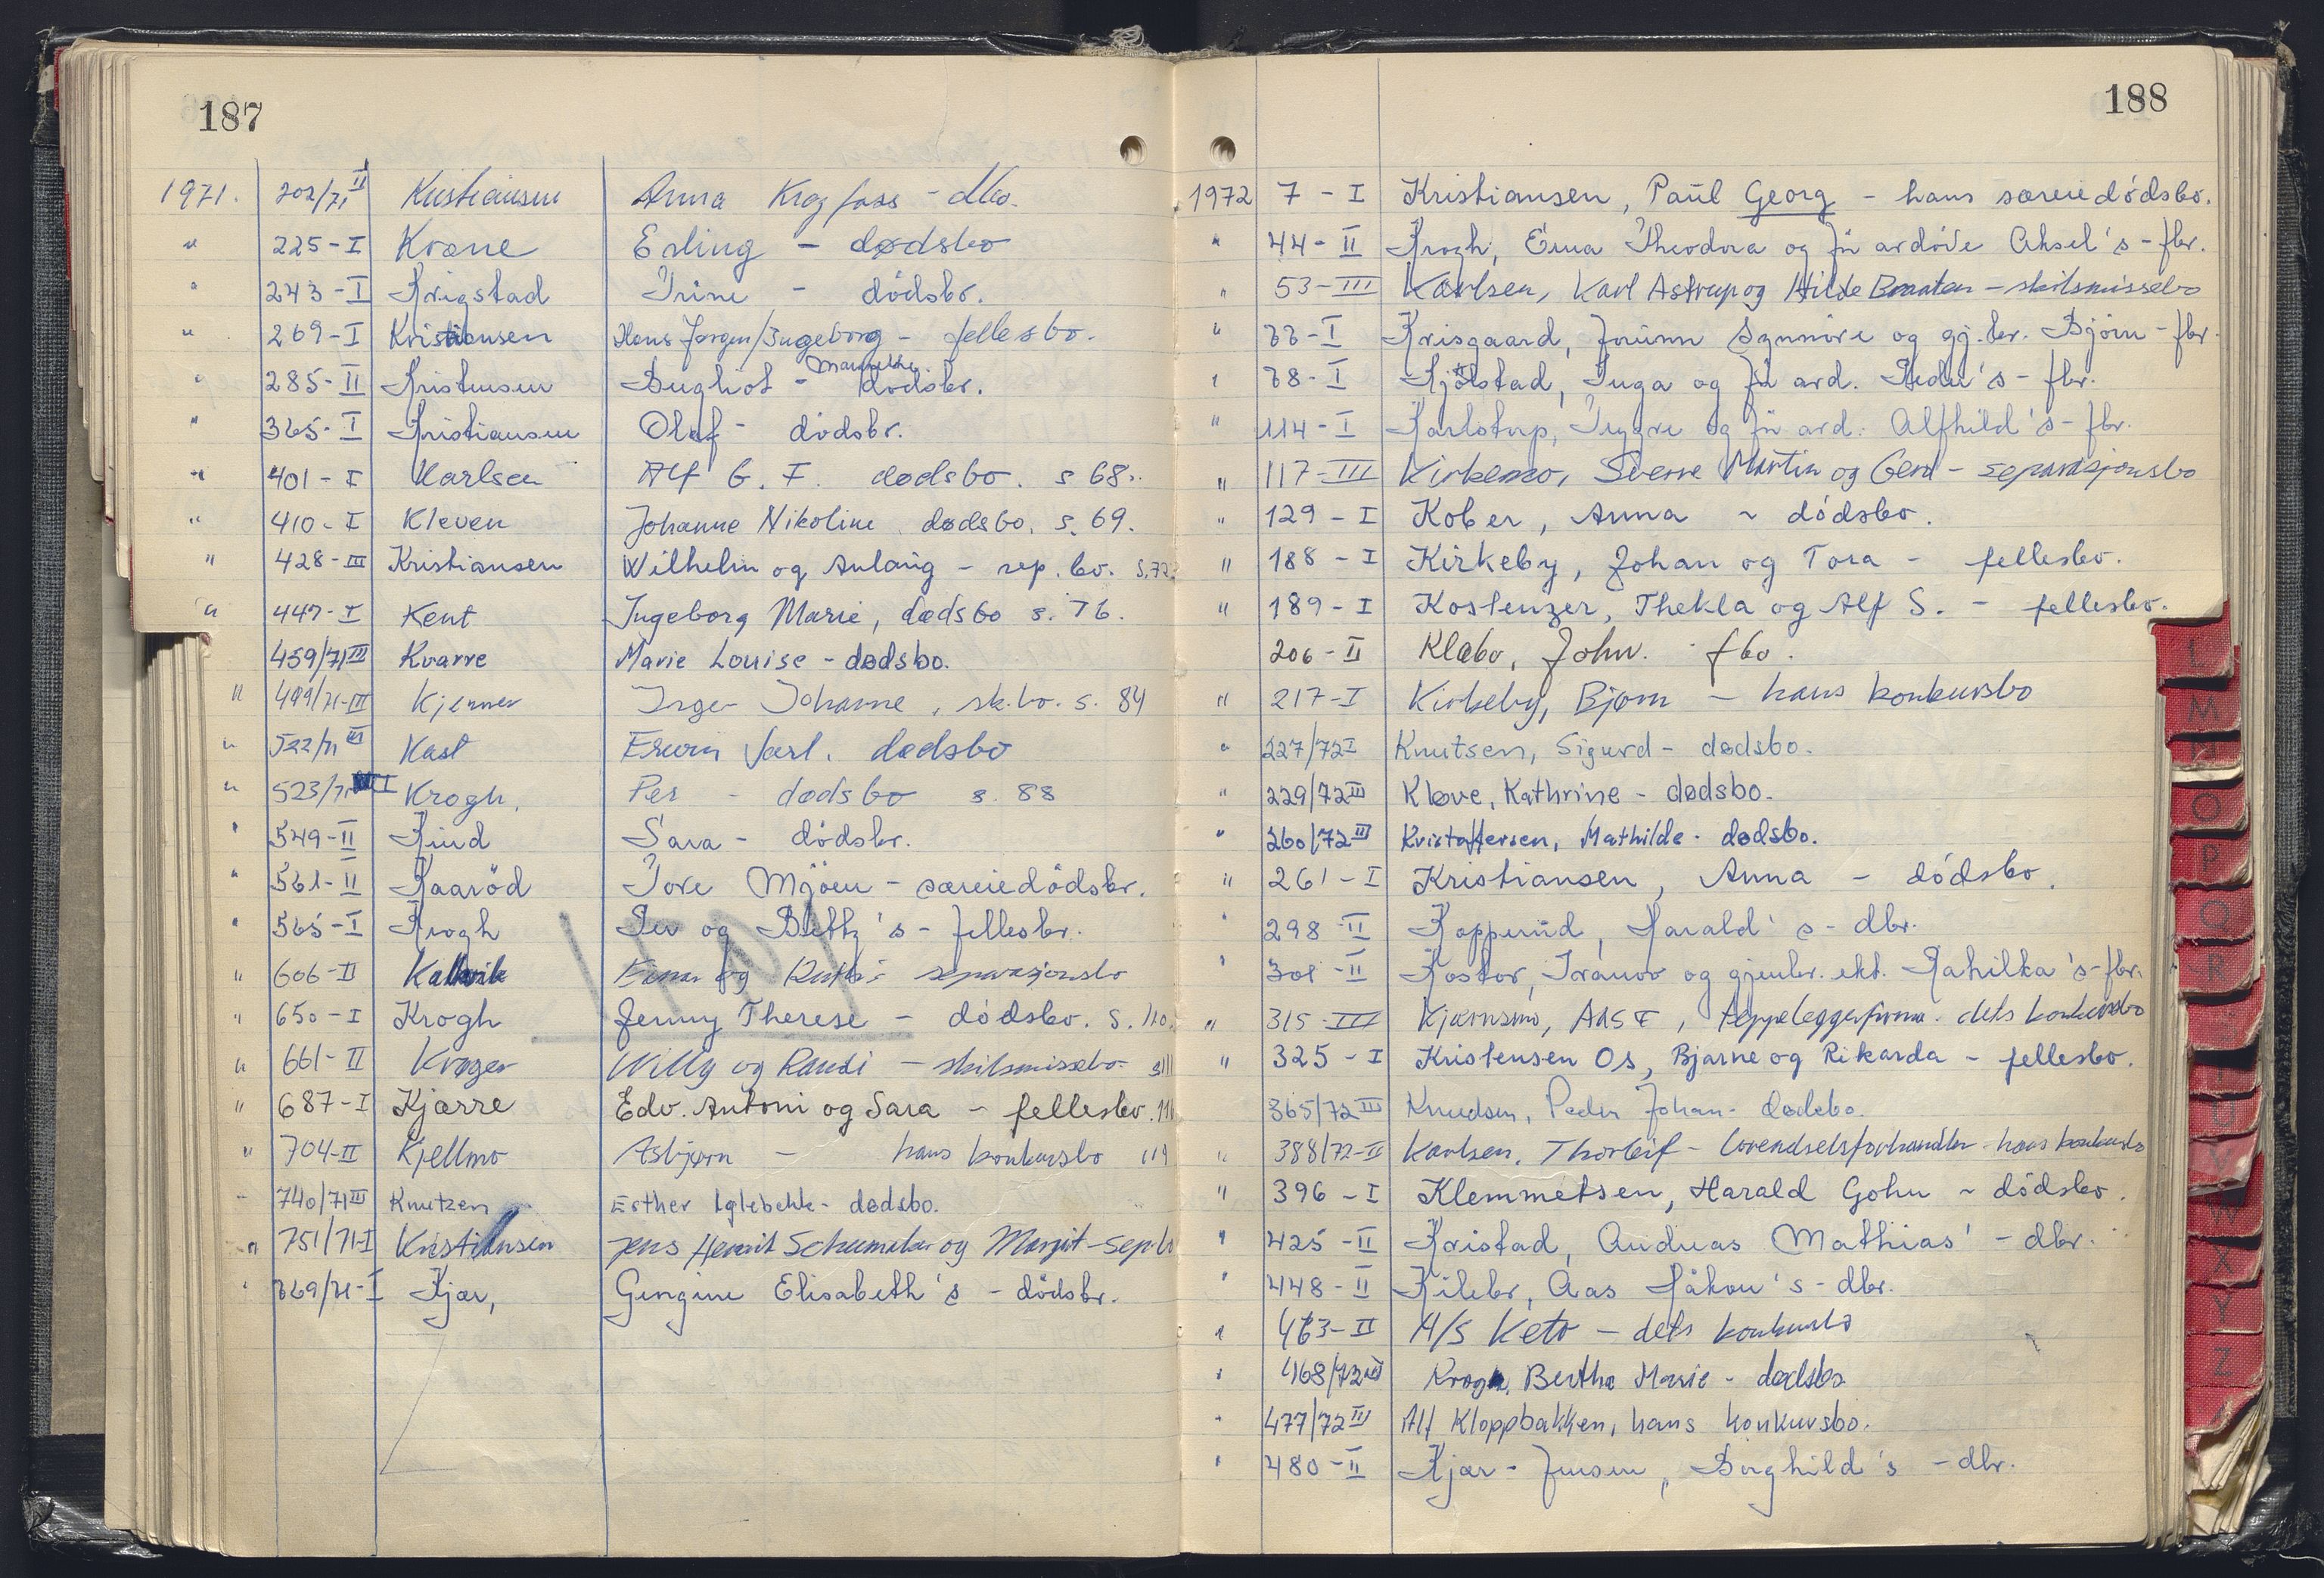 187
1971. 202/71 II Kristiansen Anna Kragfoss - dbo.
" 225-I Kværne Erling - dødsbo
" 243-I Krigstad Trine - dødsbo.
" 269-I Kristiansen Hans Jørgen/Ingeborg - fellesbo.
" 285-II Kristensen - Mannethe dødsbo.
" 365-I Kristiansen Olaf - dødsbo.
" 401-I Karlsen Alf G. F. dødsbo. s 68.
" 410-I Kleven Johanne Nikoline dødsbo. s. 69.
" 428-III Kristiansen Wilhelm og Anlaug - sep. bo. s.72
" 447-I Kent Ingeborg Marie, dødsbo s. 76.
459/71 III Kvarre Marie Louise - dødsbo.
" 499/71-III Kjerner Inger Johanne, sk.bo. s. 84
" 522/71 III Kast Erwin Karl. dødsbo
" 523/71 I Krogh, Per - dødsbo s. 88
" 549-II Kind Sara - dødsbo.
" 561-II Kaarød Tore Mjöen - særeiedødsbo.
" 565-I Krogh Per og Betty's - fellesbo.
" 606-II Kallevik Einar og Ruth's separasjonsbo
" 650-I Krogh Jenny Therese - dødsbo. s. 110.
" 661-II Krøger Willy og Randi - skilsmissebo. s111
" 687-I Kjærre Edv. Antoni og Sara - fellesbo. 116
" 704-II Kjellmo Asbjørn - hans konkursbo 119
" 740/71 III Knutzen Esther Iglebekk - dødsbo.
" 751/71-I Kristiansen Jens Henrik Schumaker og Margit - sep.bo
" 769/71-I Kjær, Gengine Elisabeth's - dødsbo.
188
1972 7-I Kristiansen, Paul Georg - hans særeiedødsbo.
" 44-II Krogh, Erna Theodora og før avdøde Aksel's - fbo.
" 53-III Karlsen, Karl Astrup og Hilde Braaten - skilsmissebo
" 77-I Krisgaard, Jorunn Synnøve og gj.lev. Bjørn - fbo.
" 78-I Kjølstad, Inga og før avd. Peder's - fbo.
" 114-I Karlstrup, Trygve og før avd. Alfhild's - fbo.
" 117-III Kirkemo, Sverre Martin og Gerd - separasjonsbo
" 129-I Kober, Anna - dødsbo.
" 188-I Kirkeby, Johan og Tora - fellesbo.
" 189-I Kostenzer, Thekla og Alf S. - fellesbo.
206-II Klæbo, John. fbo.
" 217-I Kirkeby, Bjørn - hans konkursbo
" 227/72 I Knutsen, Sigurd - dødsbo.
" 229/72 III Kløve, Kathrine - dødsbo.
" 260/72 III Kristoffersen, Mathilde - dødsbo.
" 261-I Kristiansen, Anna - dødsbo.
" 298-II Kopperud, Harald's - dbo.
" 301-II Kostov, Ivanov og gjenlev. ekt. Rahilka's - fbo.
" 315-III Kjærnsmo, Aas &, teppeleggerfirma. dets konkursbo
" 325-I Kristensen Os, Bjarne og Rikarda - fellesbo.
365/72 III Knudsen, Peder Johan - dødsbo.
" 388/72-II Karlsen, Thorleif - lovendselsforhandler - hans konkursbo
" 396-I Klemmetsen, Harald John - dødsbo.
" 425-II Kristad, Andreas Mathias' - dbo.
" 448-II Kilebo, Aas Håkon's - dbo.
" 463-II A/S Keto - dets konkursbo
" 468/72 III Krogh, Bertha Marie - dødsbo.
" 477/72 III Alf Kloppbakken, hans konkursbo.
" 480-II Kjær-Jensen, Borghild's - dbo.
L
M
N
O
P
Q
R
U
V
W
X
Y
Z